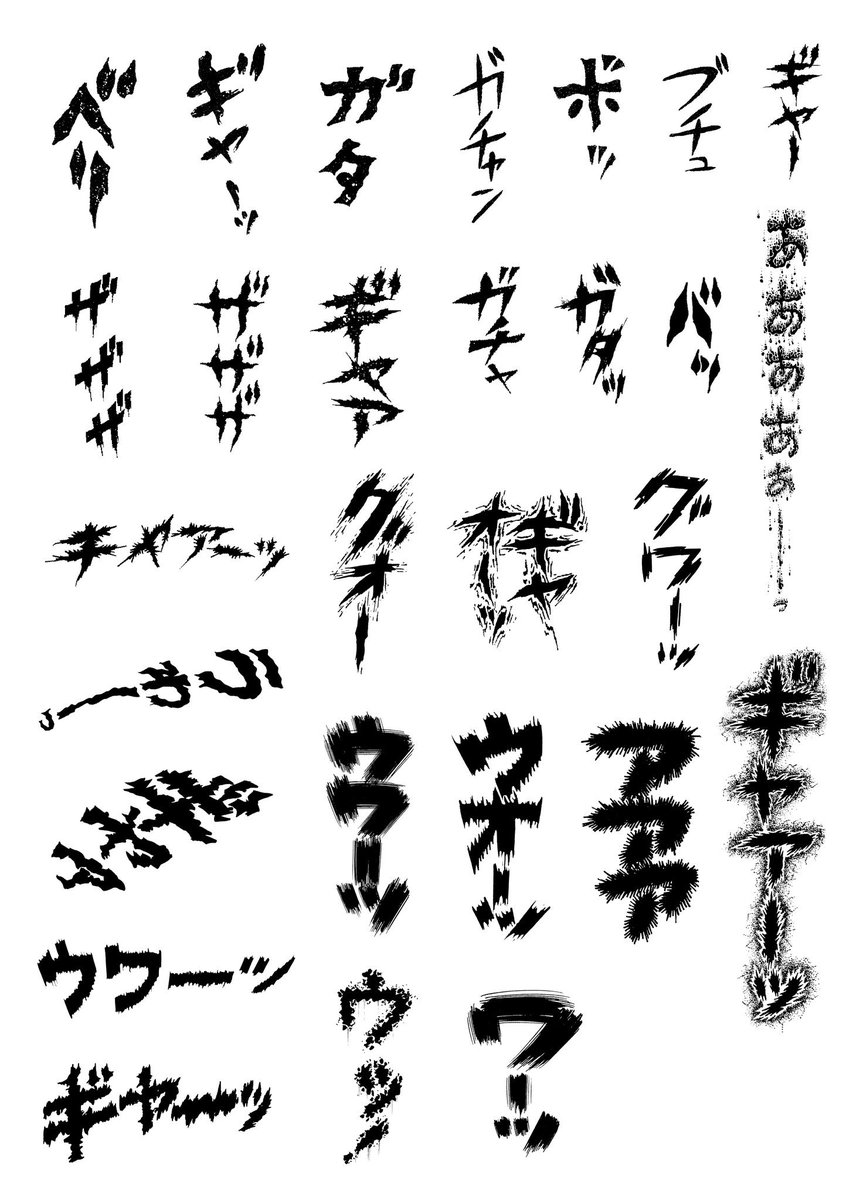 ギャー
ブチュ
ボッ
ガチャン
ガタ
ギャーッ
ベリ
ああああぁーっ
バッ
ガタッ
ガチャ
ギャア
ザザザ
ザザザ
グワーッ
ギャ
オーッ
グオー
キャアーッ
ギャアーッ
アアア
ウオーッ
ウワーッ
ワーッ
ウワーッ
ギャーッ